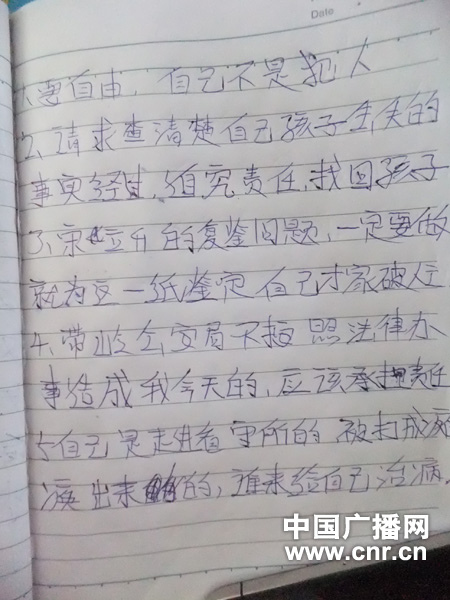 Date
1、要自由,自己不是犯人
2、请求查清楚自己孩子丢失的
事实经过,追究责任,找回孩子
3、宋立升的复鉴问题,一定要做
就为这一纸鉴定自己才家破人亡
4、带岭公安局不按照法律办
事造成我今天的,应该承担责任
5自己是走进看守所的被打成瘫
痪出来的,谁来给自己治病.
中国广播网
www.cnr.cn